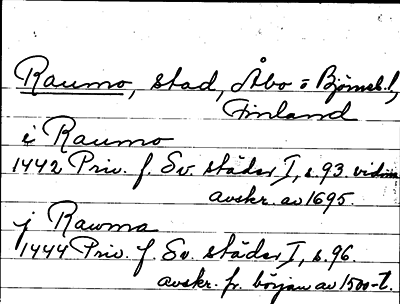 Raumo, stad, Åbo o Björneb. l,
Finland
i Raumo
1442 Priv. f. Sv. städer I, s. 93. vidim
avskr. av 1695.
j Rawma
1444 Priv. f. Sv. städer I, s. 96.
avskr. fr. början av 1500-t.